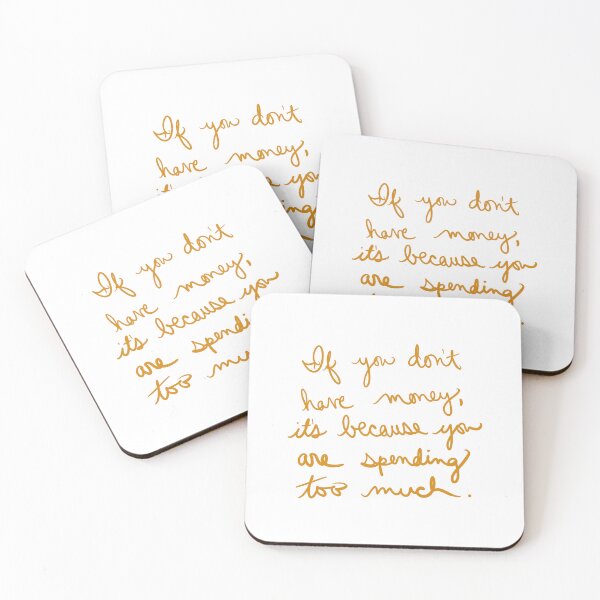 If you don't
have money,
you
If you don't
have money,
it's because you
are spending
If you don't
have money,
it's because you
are
too
If you don't
have money,
it's because you
are spending
too much.